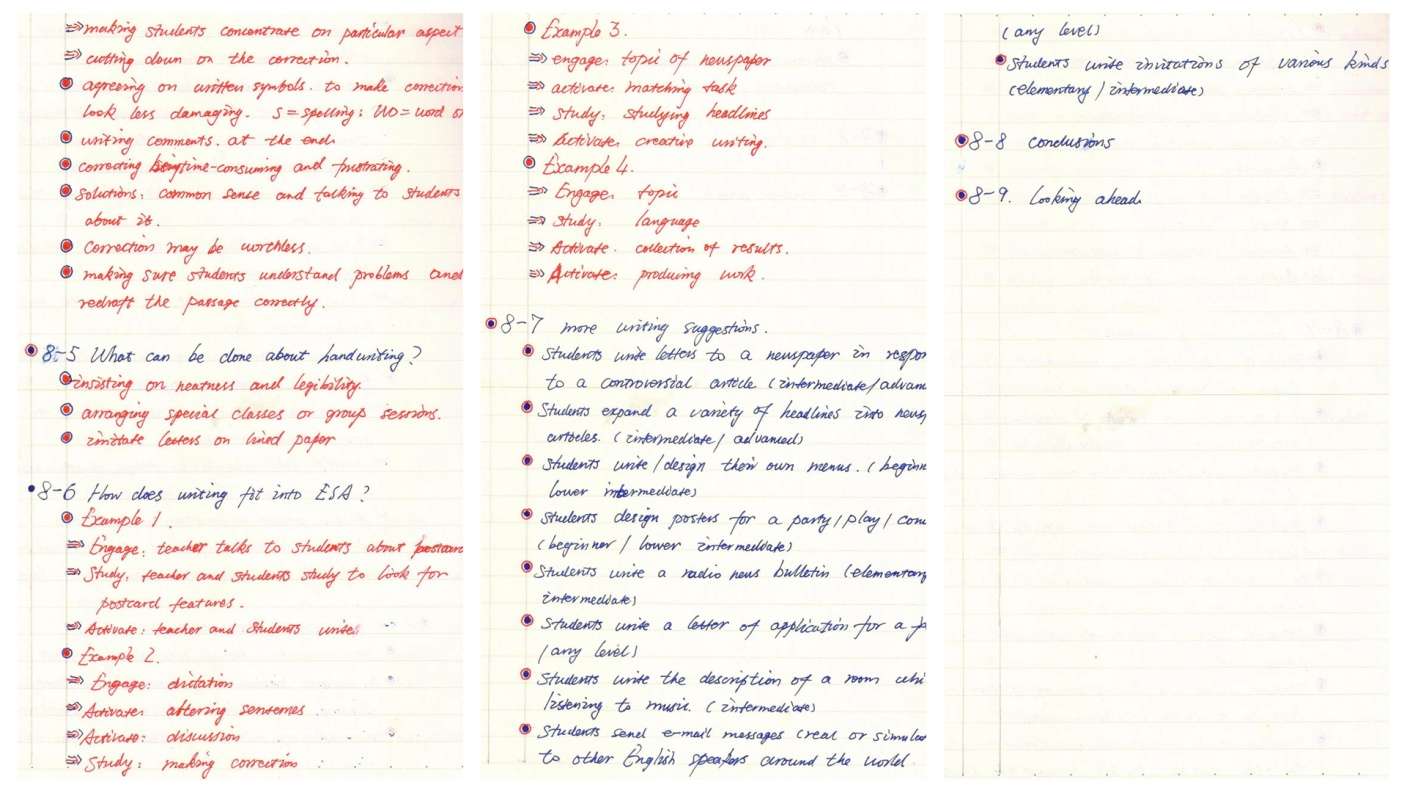 ⇒ making students concentrate on particular aspect
⇒ cutting down on the correction.
agreeing on written symbols. to make correction
look less damaging. S = spelling; WO = word or
writing comments. at the end.
correcting being time-consuming and frustrating.
Solutions: common sense and talking to students
about it.
Correction may be worthless.
making sure students understand problems and
redraft the passage correctly.
8-5 What can be done about handwriting?
insisting on neatness and legibility.
arranging special classes or group sessions.
imitate letters on lined paper
8-6 How does writing fit into ESA?
Example 1.
⇒ Engage: teacher talks to students about postcard
⇒ Study: teacher and students study to look for
postcard features.
⇒ Activate: teacher and students writes
Example 2.
⇒ Engage: dictation
⇒ Activate: altering sentences
⇒ Activate: discussion
⇒ Study: making correction
Example 3.
⇒ engage: topic of newspaper
⇒ activate: matching task
⇒ Study: studying headlines
⇒ Activate: creative writing.
Example 4.
⇒ Engage: topic
⇒ Study: language
⇒ Activate: collection of results.
⇒ Activate: producing work.
8-7 more writing suggestions.
Students write letters to a newspaper in respon
to a controversial article (intermediate/advan
Students expand a variety of headlines into news
articles. (intermediate/advanced)
Students write/design their own menus. (beginn
lower intermediate)
Students design posters for a party/play/con
(beginner/lower intermediate)
Students write a radio news bulletin (elementary
intermediate)
Students write a letter of application for a j
(any level)
Students write the description of a room whi
listening to music. (intermediate)
Students send e-mail messages (real or simula
to other English speakers around the world
(any level)
Students write invitations of various kinds
(elementary/intermediate)
8-8 conclusions
8-9. Looking ahead.